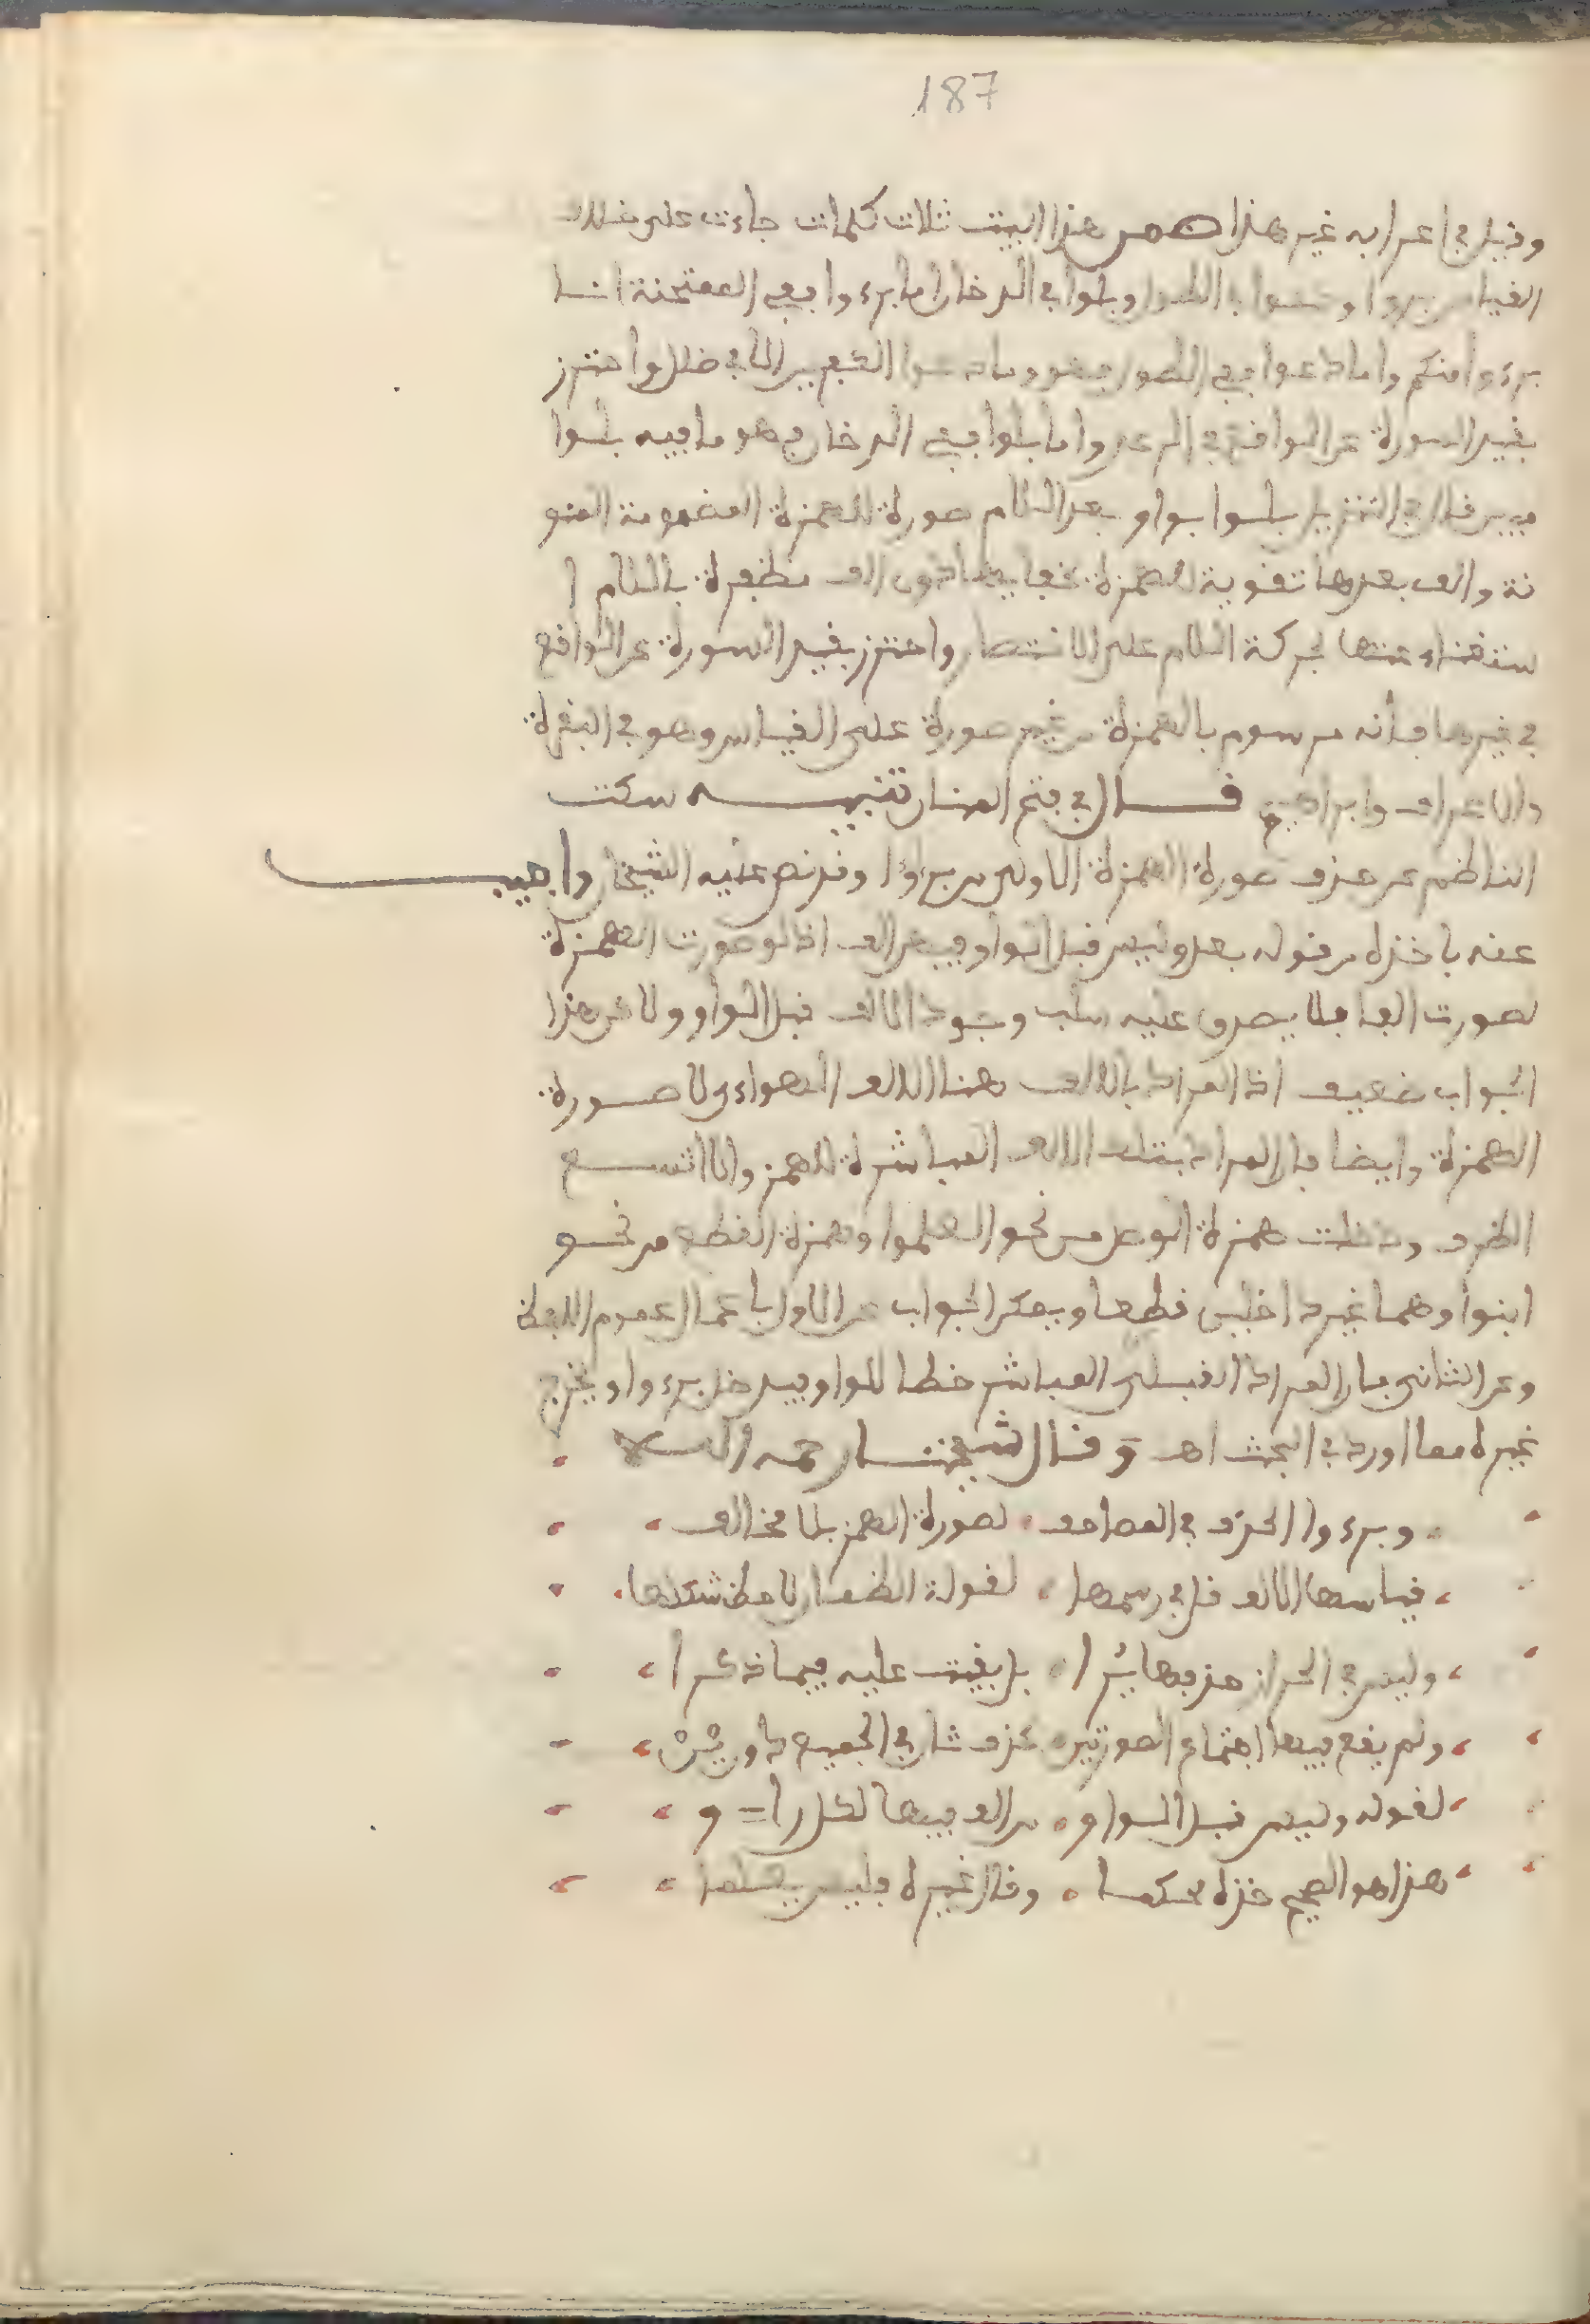 187
وقيل في اعرابه غير هذا ضمن هذا البيت ثلاث كلمات جاءت على خلاف
القياس برءوا ودعوا بالطول وبلوا في الدخان اما برءوا ففي الممتحنة انا
برءوا منكم واما دعوا ففي الطول وهو وما دعوا الكفرين الا في ضلل واحترز
بقيد السورة عن الواقع في الرعد واما بلوا ففي الدخان وهو ما فيه بلوا
مبين قال في التنزيل بلوا بواو بعد اللام صورة للهمزة المضمومة المنو
نة والف بعدها تقوية للهمزة لخفايها دون الف مظفرة باللام ا
ستغناء عنها بحركة اللام على الاختصار واحترز بقيد السورة عن الواقع
في غيرها فأنه مرسوم بالهمزة من غير صورة على القياس وهو في البقرة
والاعراف وابراهيم قال في فتح المنان تنبيه سكت
الناظم عن حذف صورة الهمزة الاولى من برءوا وقد نص عليه الشيخان واجيب
عنه باخذه من قوله بعد وليس قبل الواو فيهن الف اذ لو صورت الهمزة
لصورت الفا فلا يصدق عليه سلب وجود الالف قبل الواو ولاكن هذا
الجواب ضعيف اذ المراد بالالف هنا الالف الهواءى لا صورة
الهمزة وايضا فان المراد بتلك الالف المباشرة للهمز والا اتسع
الظرف ودخلت همزة الوصل من نحو العلموا وهمزة القطع من نحو
ابنوا وهما غير داخلين قطعا ويمكن الجواب عن الاول باعمال عموم اللفظ
وعن الثاني بان المراد القبلى المباشر خطا للواو فيدخل برءوا ويخرج
غيره مما اورد في البحث اهـ وقال شيخنا رحمه الله
وبرءوا الحذف في المصاحف لصورة الهمز بلا مخالف
قياسها الالف قل في رسمها لقولة الظمان لاحظ شكلها
وليس في الحرز حذفها يرا بل بقيت عليه فيما ذكرا
ولم يقع فيها اجتماع الصورتين
لقوله وليس قبل الواو من الف فيها لكل راو
هذا هو الصحيح خذه محكما وقال غيره فليس يعلما